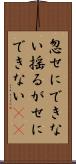 忽せにできな
い揺るがせに
できない((